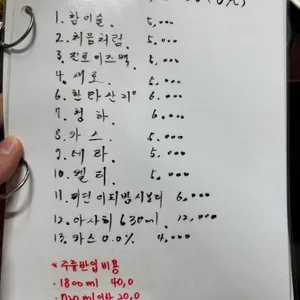 1. 참이슬 5,000
2. 처음처럼. 5,000
3. 진로이즈백 5,000
4. 새로 5,000
6. 한라산 21° 6,000
7. 청하 6,000
8. 카스 5,000
9. 테라 5,000
10. 켈리 5,000
11. 버드 6,000
12. 아사히 630ml. 12,000
13. 카스 0.0% 4,000
* 주류반입비용
· 1800ml 40,0
20,0